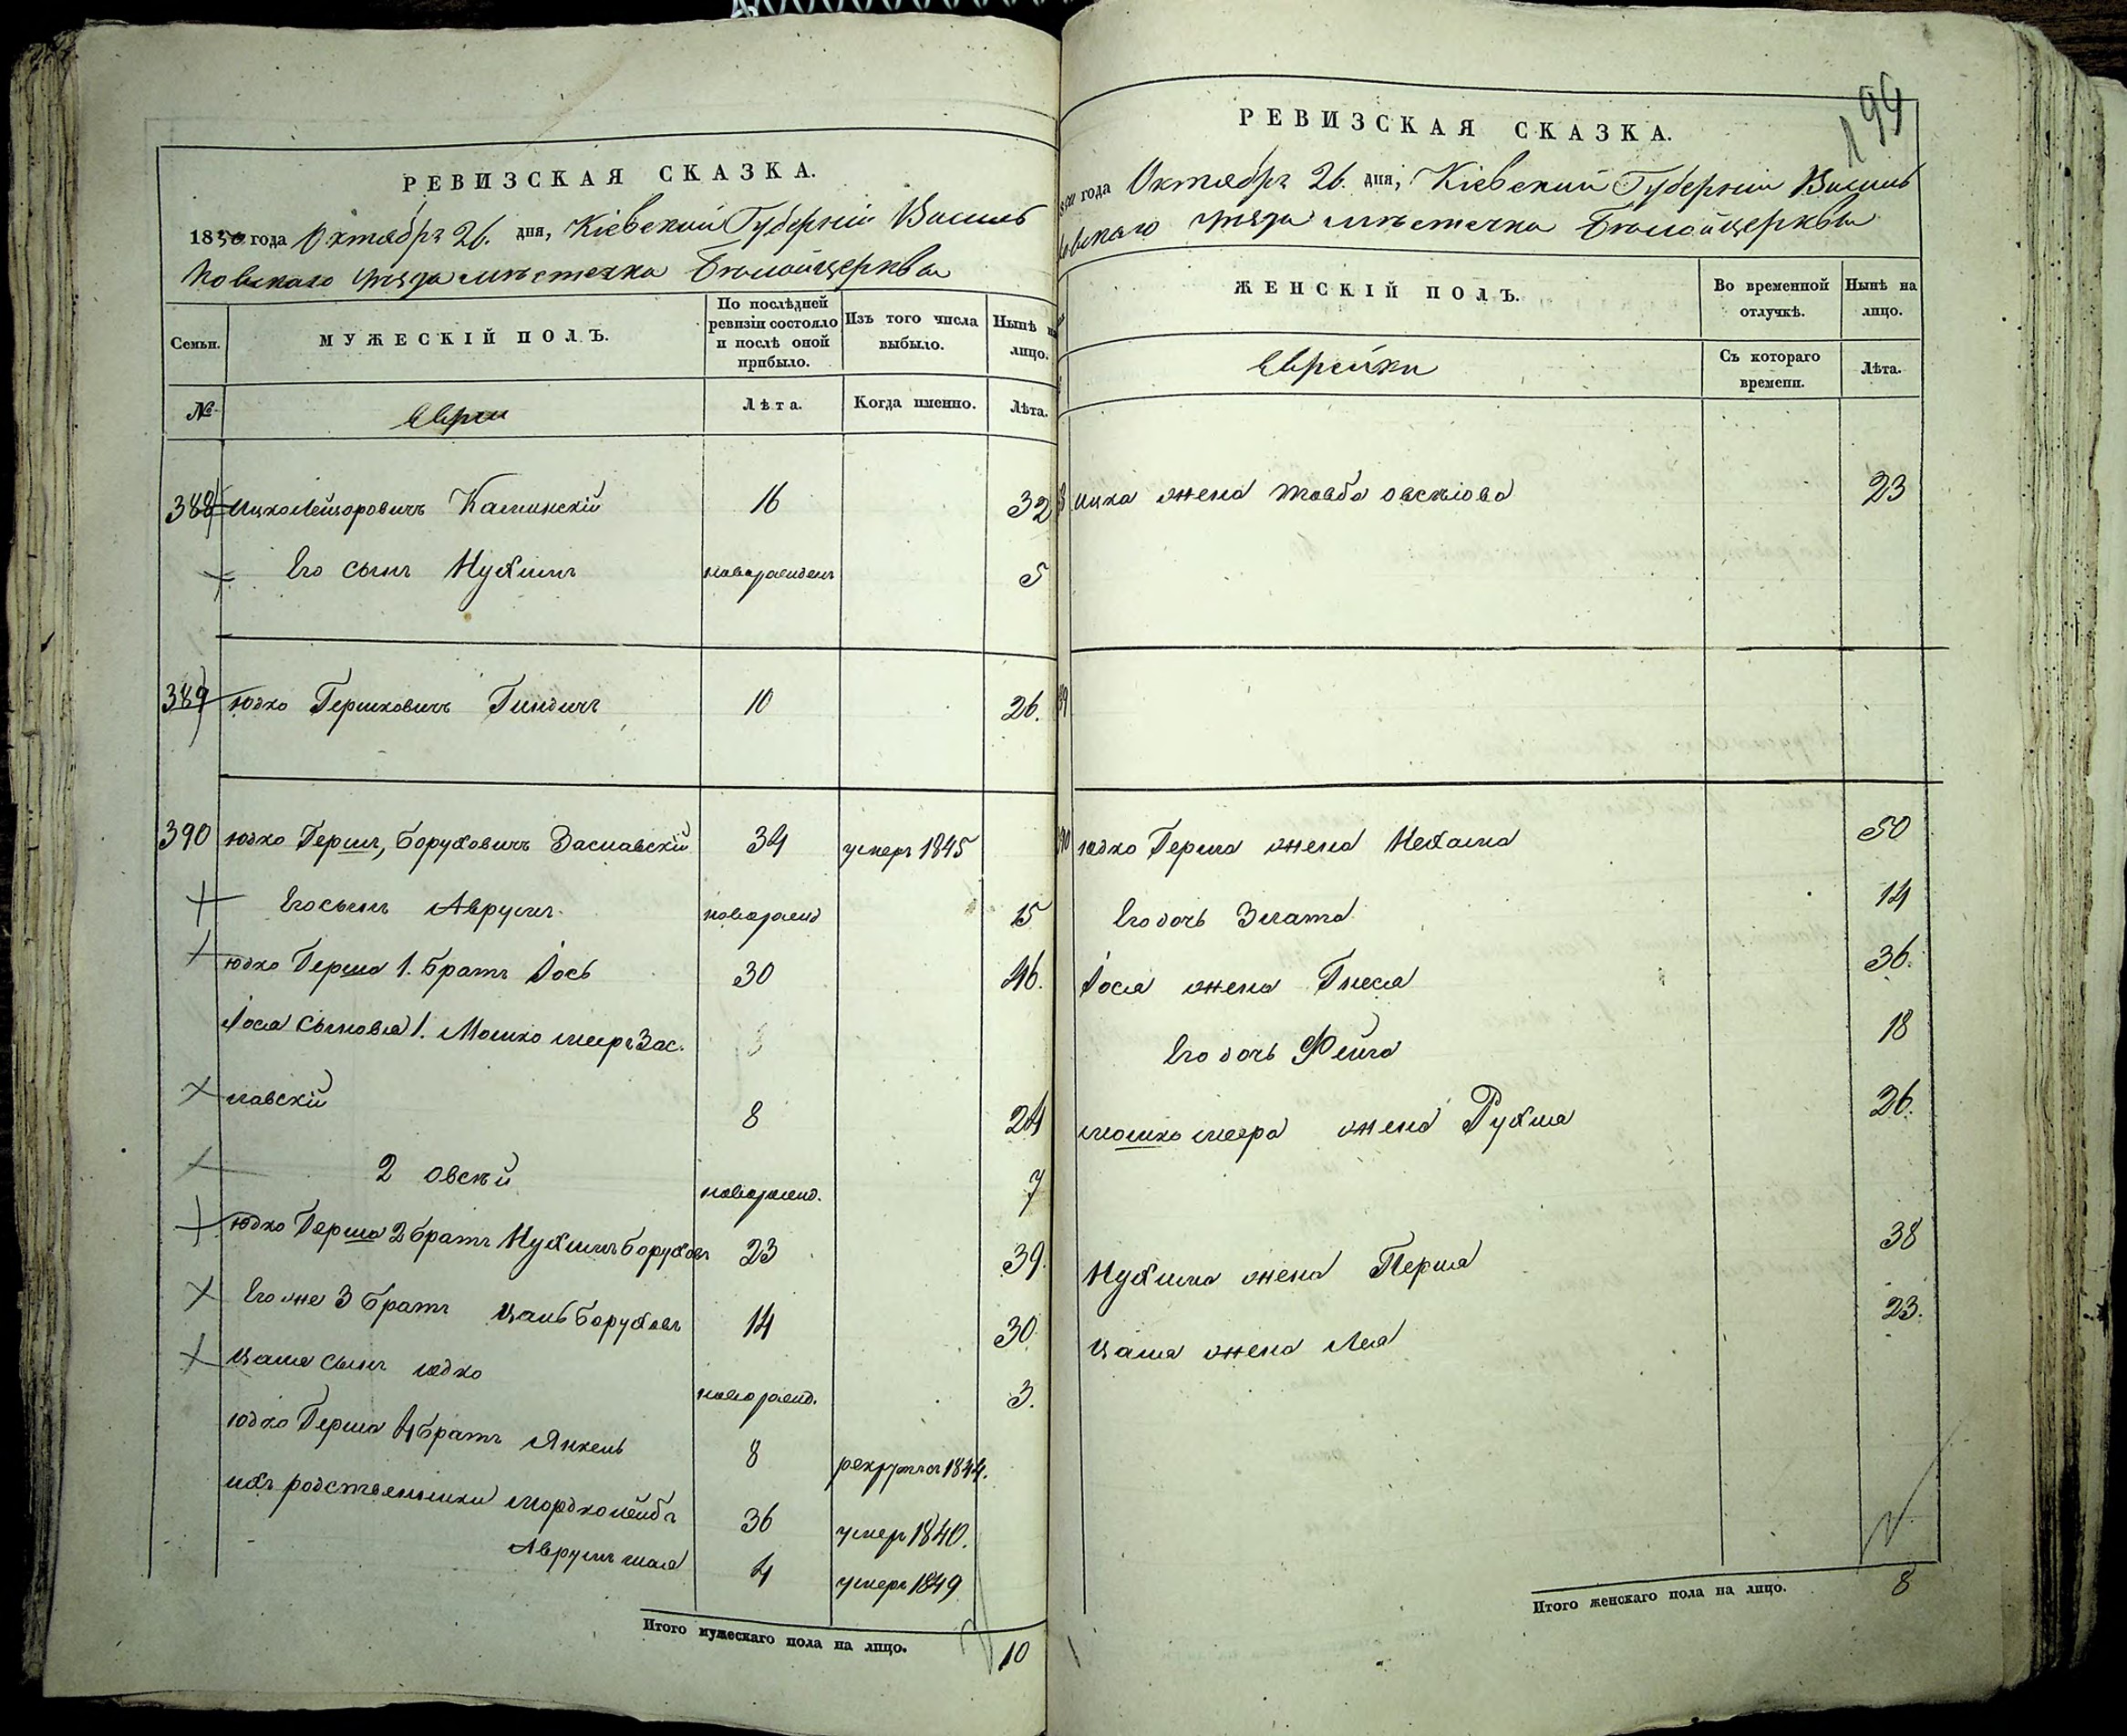 РЕВИЗСКАЯ СКАЗКА.
1850 года Октября 26. дня, Кіевской Губерніи Василь
ковскаго уезда местечка Белойцеркви
Семьи.
МУЖЕСКІЙ ПОЛЪ.
По послѣдней ревизіи состояло и послѣ оной прибыло.
Изъ того числа выбыло.
Нынѣ на лицо.
№
Евреи
Лѣта.
Когда именно.
Лѣта.
388 Ицко Лейзоровичъ Каминскій 16 32
Его сынъ Нухимъ новорожденъ 5
389 Юдко Гершковичъ Гиндичъ 10 26.
390 Юдко Гершъ, Боруховичъ Заславскій 34 умеръ 1845
Его сынъ Аврумъ новорожд 15
Юдко Герша 1. братъ Іось 30 46.
Іося сыновья 1. Мошко меер Зас.
лавскій 8 24
2 Овсей новорожд. 7
Юдко Герша 2 братъ Нухимъ Борухов 23 39.
Его же 3 братъ Цаль Борухов 14 30.
Цаля сынъ Юдко новорожд. 3.
Юдко Герша 4 братъ Янкель 8 рекрутъ 1844.
ихъ родственники Мордко Лейбъ 36 умеръ 1840.
Аврумъ Шая 4 умеръ 1849
Итого мужескаго пола на лицо. 10
199
РЕВИЗСКАЯ СКАЗКА.
года Октября 26. дня, Кіевской Губерніи Василь
ковскаго уезда местечка Белойцеркви
ЖЕНСКІЙ ПОЛЪ.
Во временной отлучкѣ.
Нынѣ на лицо.
Еврейки
Съ котораго времени.
Лѣта.
Ицка жена Товба Овсеіова 23
89
90 Юдко Герша жена Нехама 50
Его дочь Злата 14
Іося жена Гнеся 36.
Его дочь Фейга 18
Мошко меера жена Рухля 26.
Нухима жена Перля 38
Цаля жена Лея 23.
Итого женскаго пола на лицо. 8